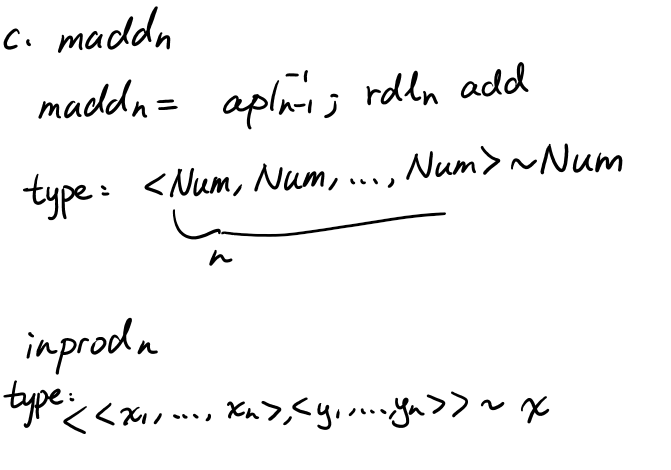 c. maddₙ
maddₙ = aplₙ₋₁⁻¹ ; rdlₙ add
type: <Num, Num, ..., Num> ~ Num
n
inprodₙ
type: <<x₁, ..., xₙ>,<y₁,...,yₙ>> ~ x